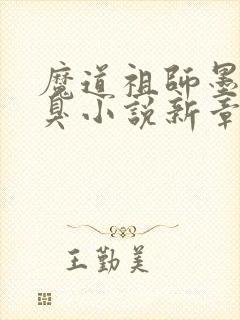 魔道祖師墨
臭小說新章
王勤美